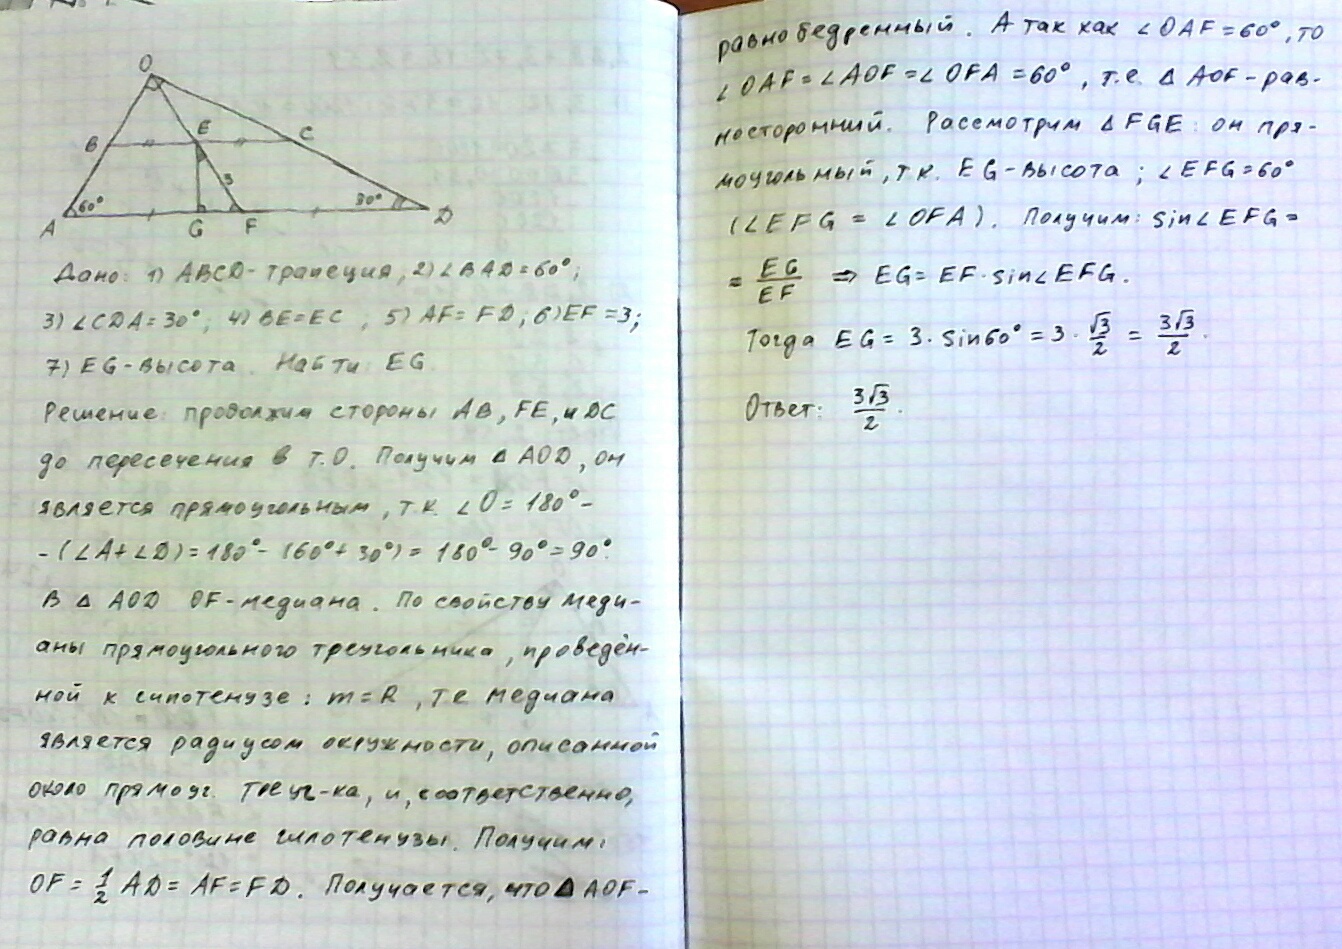 O
B E C
3
A 60° G F 30° D
Дано: 1) ABCD-трапеция, 2) ∠BAD=60°;
3) ∠CDA=30°; 4) BE=EC ; 5) AF=FD; 6) EF=3;
7) EG-высота. Найти EG.
Решение: продолжим стороны AB, FE, и DC
до пересечения в т.O. Получим △ AOD, он
является прямоугольным, т.к. ∠O=180°-
-(∠A+∠D)=180°-(60°+30°)=180°-90°=90°.
В △ AOD OF-медиана. По свойству меди-
аны прямоугольного треугольника, проведён-
ной к гипотенузе: m=R, т.е медиана
является радиусом окружности, описанной
около прямоуг. треуг-ка, и, соответственно,
равна половине гипотенузы. Получим:
OF = 1/2 AD = AF = FD. Получается, что △ AOF-
равнобедренный. А так как ∠OAF=60°, то
∠OAF=∠AOF=∠OFA=60°, т.е. △ AOF-рав-
носторонний. Рассмотрим △ FGE: он пря-
моугольный, т.к. EG-высота; ∠EFG=60°
(∠EFG = ∠OFA). Получим: sin∠EFG=
= EG/EF ⇒ EG=EF·sin∠EFG.
Тогда EG= 3·sin60°=3·√3/2 = 3√3/2.
Ответ: 3√3/2.